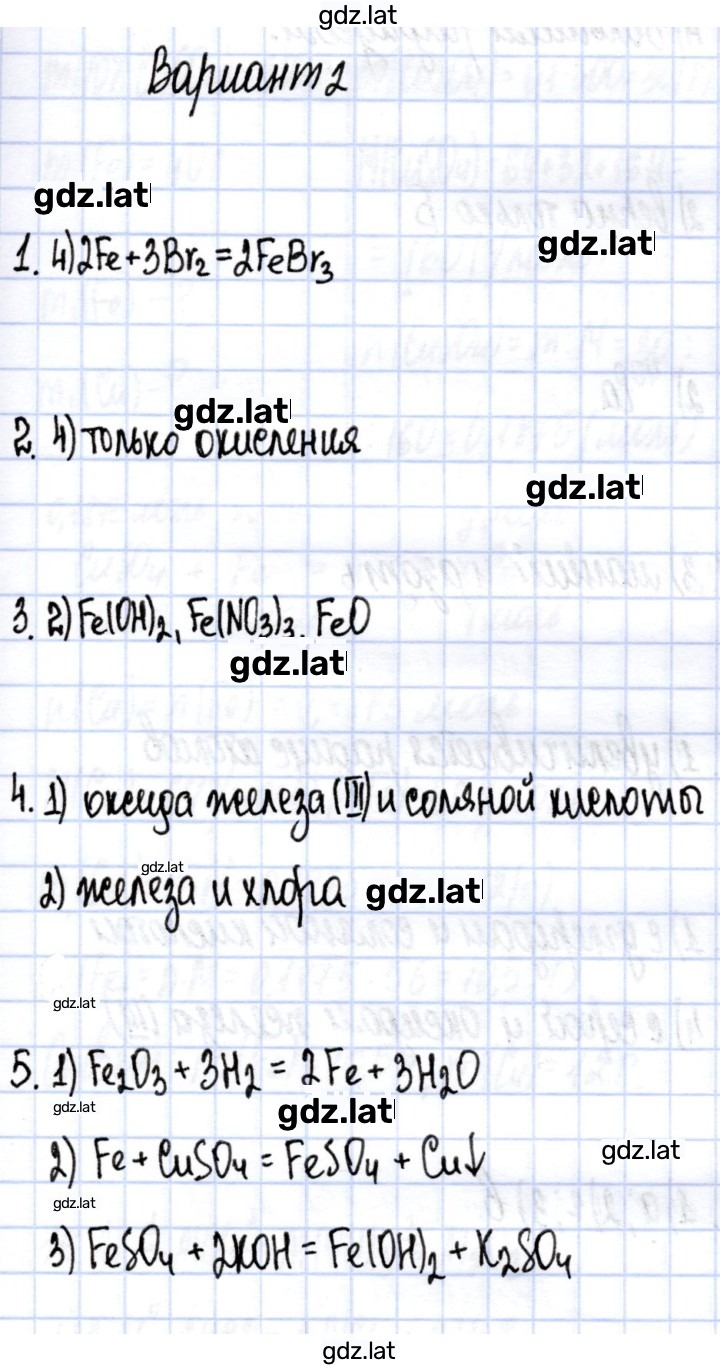 gdz.lat
Вариант 2
gdz.lat
gdz.lat
1. 4) 2Fe + 3Br₂ = 2FeBr₃
gdz.lat
2. 4) только окисления
gdz.lat
3. 2) Fe(OH)₂, Fe(NO₃)₃, FeO
gdz.lat
4. 1) оксида железа (III) и соляной кислоты
gdz.lat
2) железа и хлора gdz.lat
gdz.lat
5. 1) Fe₂O₃ + 3H₂ = 2Fe + 3H₂O
gdz.lat
gdz.lat
2) Fe + CuSO₄ = FeSO₄ + Cu↓
gdz.lat
gdz.lat
3) FeSO₄ + 2KOH = Fe(OH)₂ + K₂SO₄
gdz.lat